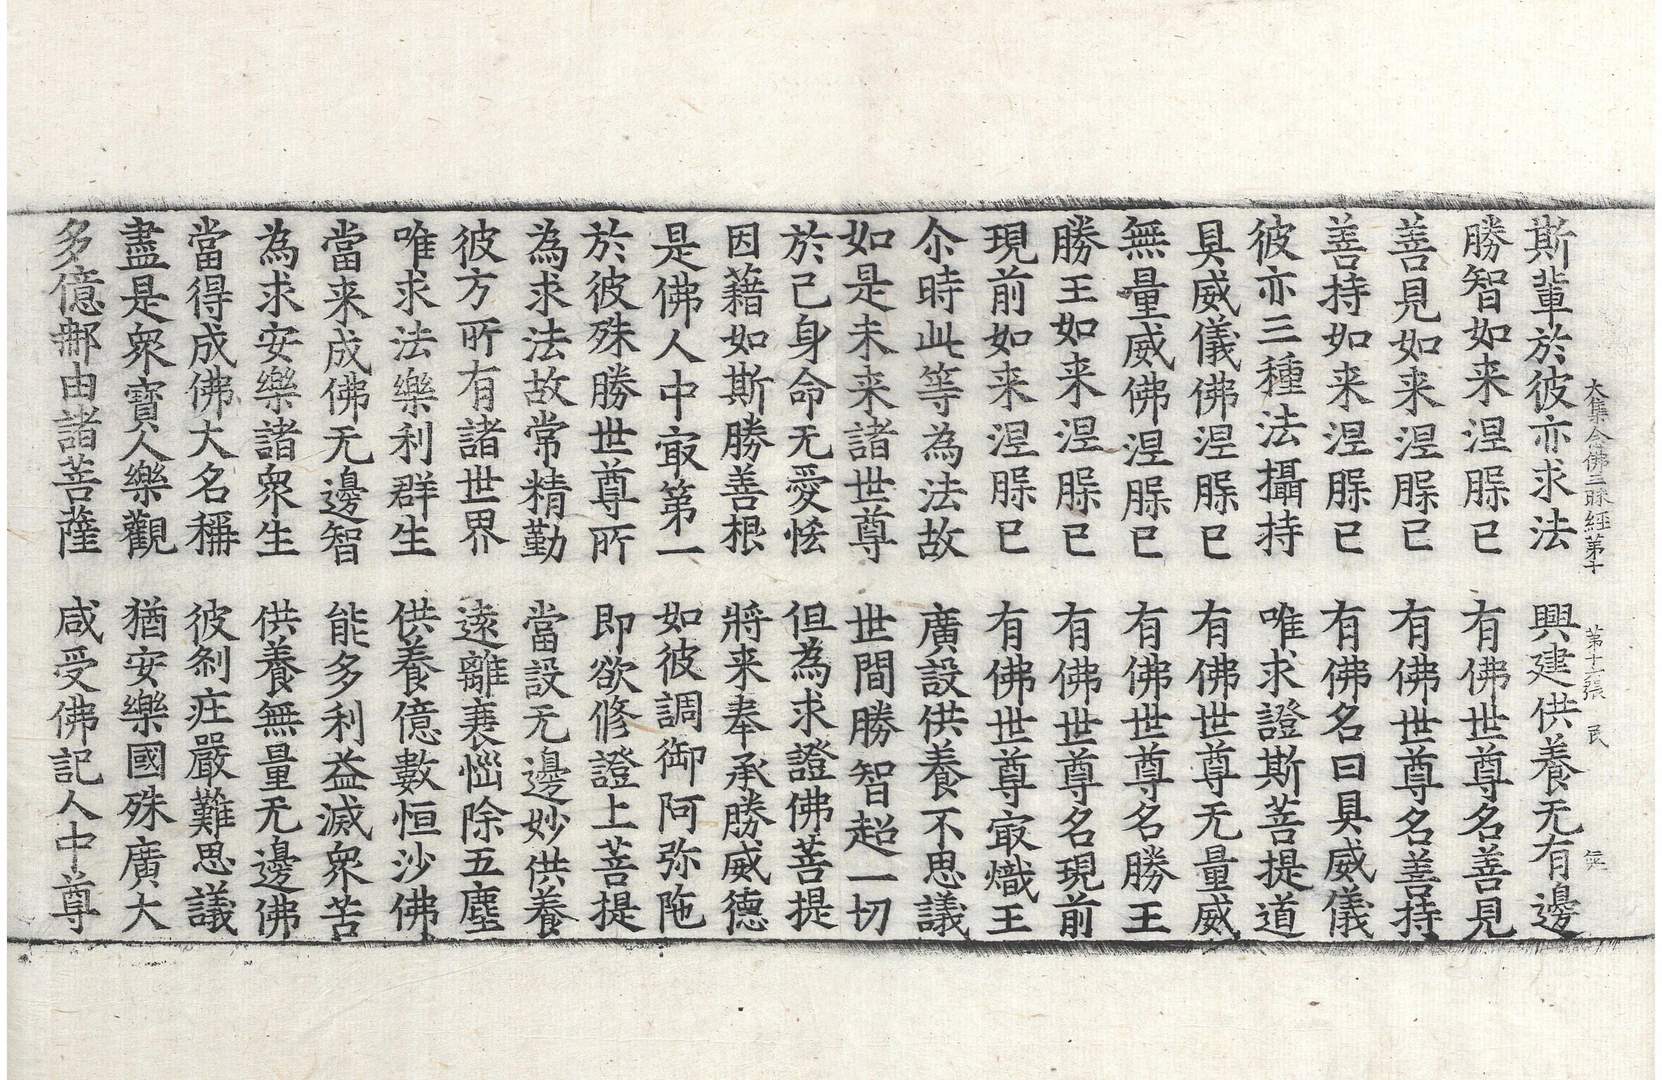 大集念佛三昧經第十 第十六張 民
斯輩於彼亦求法 興建供養无有邊
勝智如来涅槃已 有佛世尊名善見
善見如来涅槃已 有佛世尊名善持
善持如来涅槃已 有佛名曰具威儀
彼亦三種法攝持 唯求證斯菩提道
具威儀佛涅槃已 有佛世尊无量威
無量威佛涅槃已 有佛世尊名勝王
勝王如来涅槃已 有佛世尊名現前
現前如来涅槃已 有佛世尊㝡熾王
尒時此等為法故 廣設供養不思議
如是未来諸世尊 世間勝智超一切
於己身命无愛恡 但為求證佛菩提
因藉如斯勝善根 將来奉承勝威德
是佛人中㝡第一 如彼調御阿弥陁
於彼殊勝世尊所 即欲修證上菩提
為求法故常精勤 當設无邊妙供養
彼方所有諸世界 遠離衰惱除五塵
唯求法樂利群生 供養億數恒沙佛
當来成佛无邊智 能多利益滅衆苦
為求安樂諸衆生 供養無量无邊佛
當得成佛大名稱 彼剎庄嚴難思議
盡是衆寶人樂觀 猶安樂國殊廣大
多億那由諸菩薩 咸受佛記人中尊